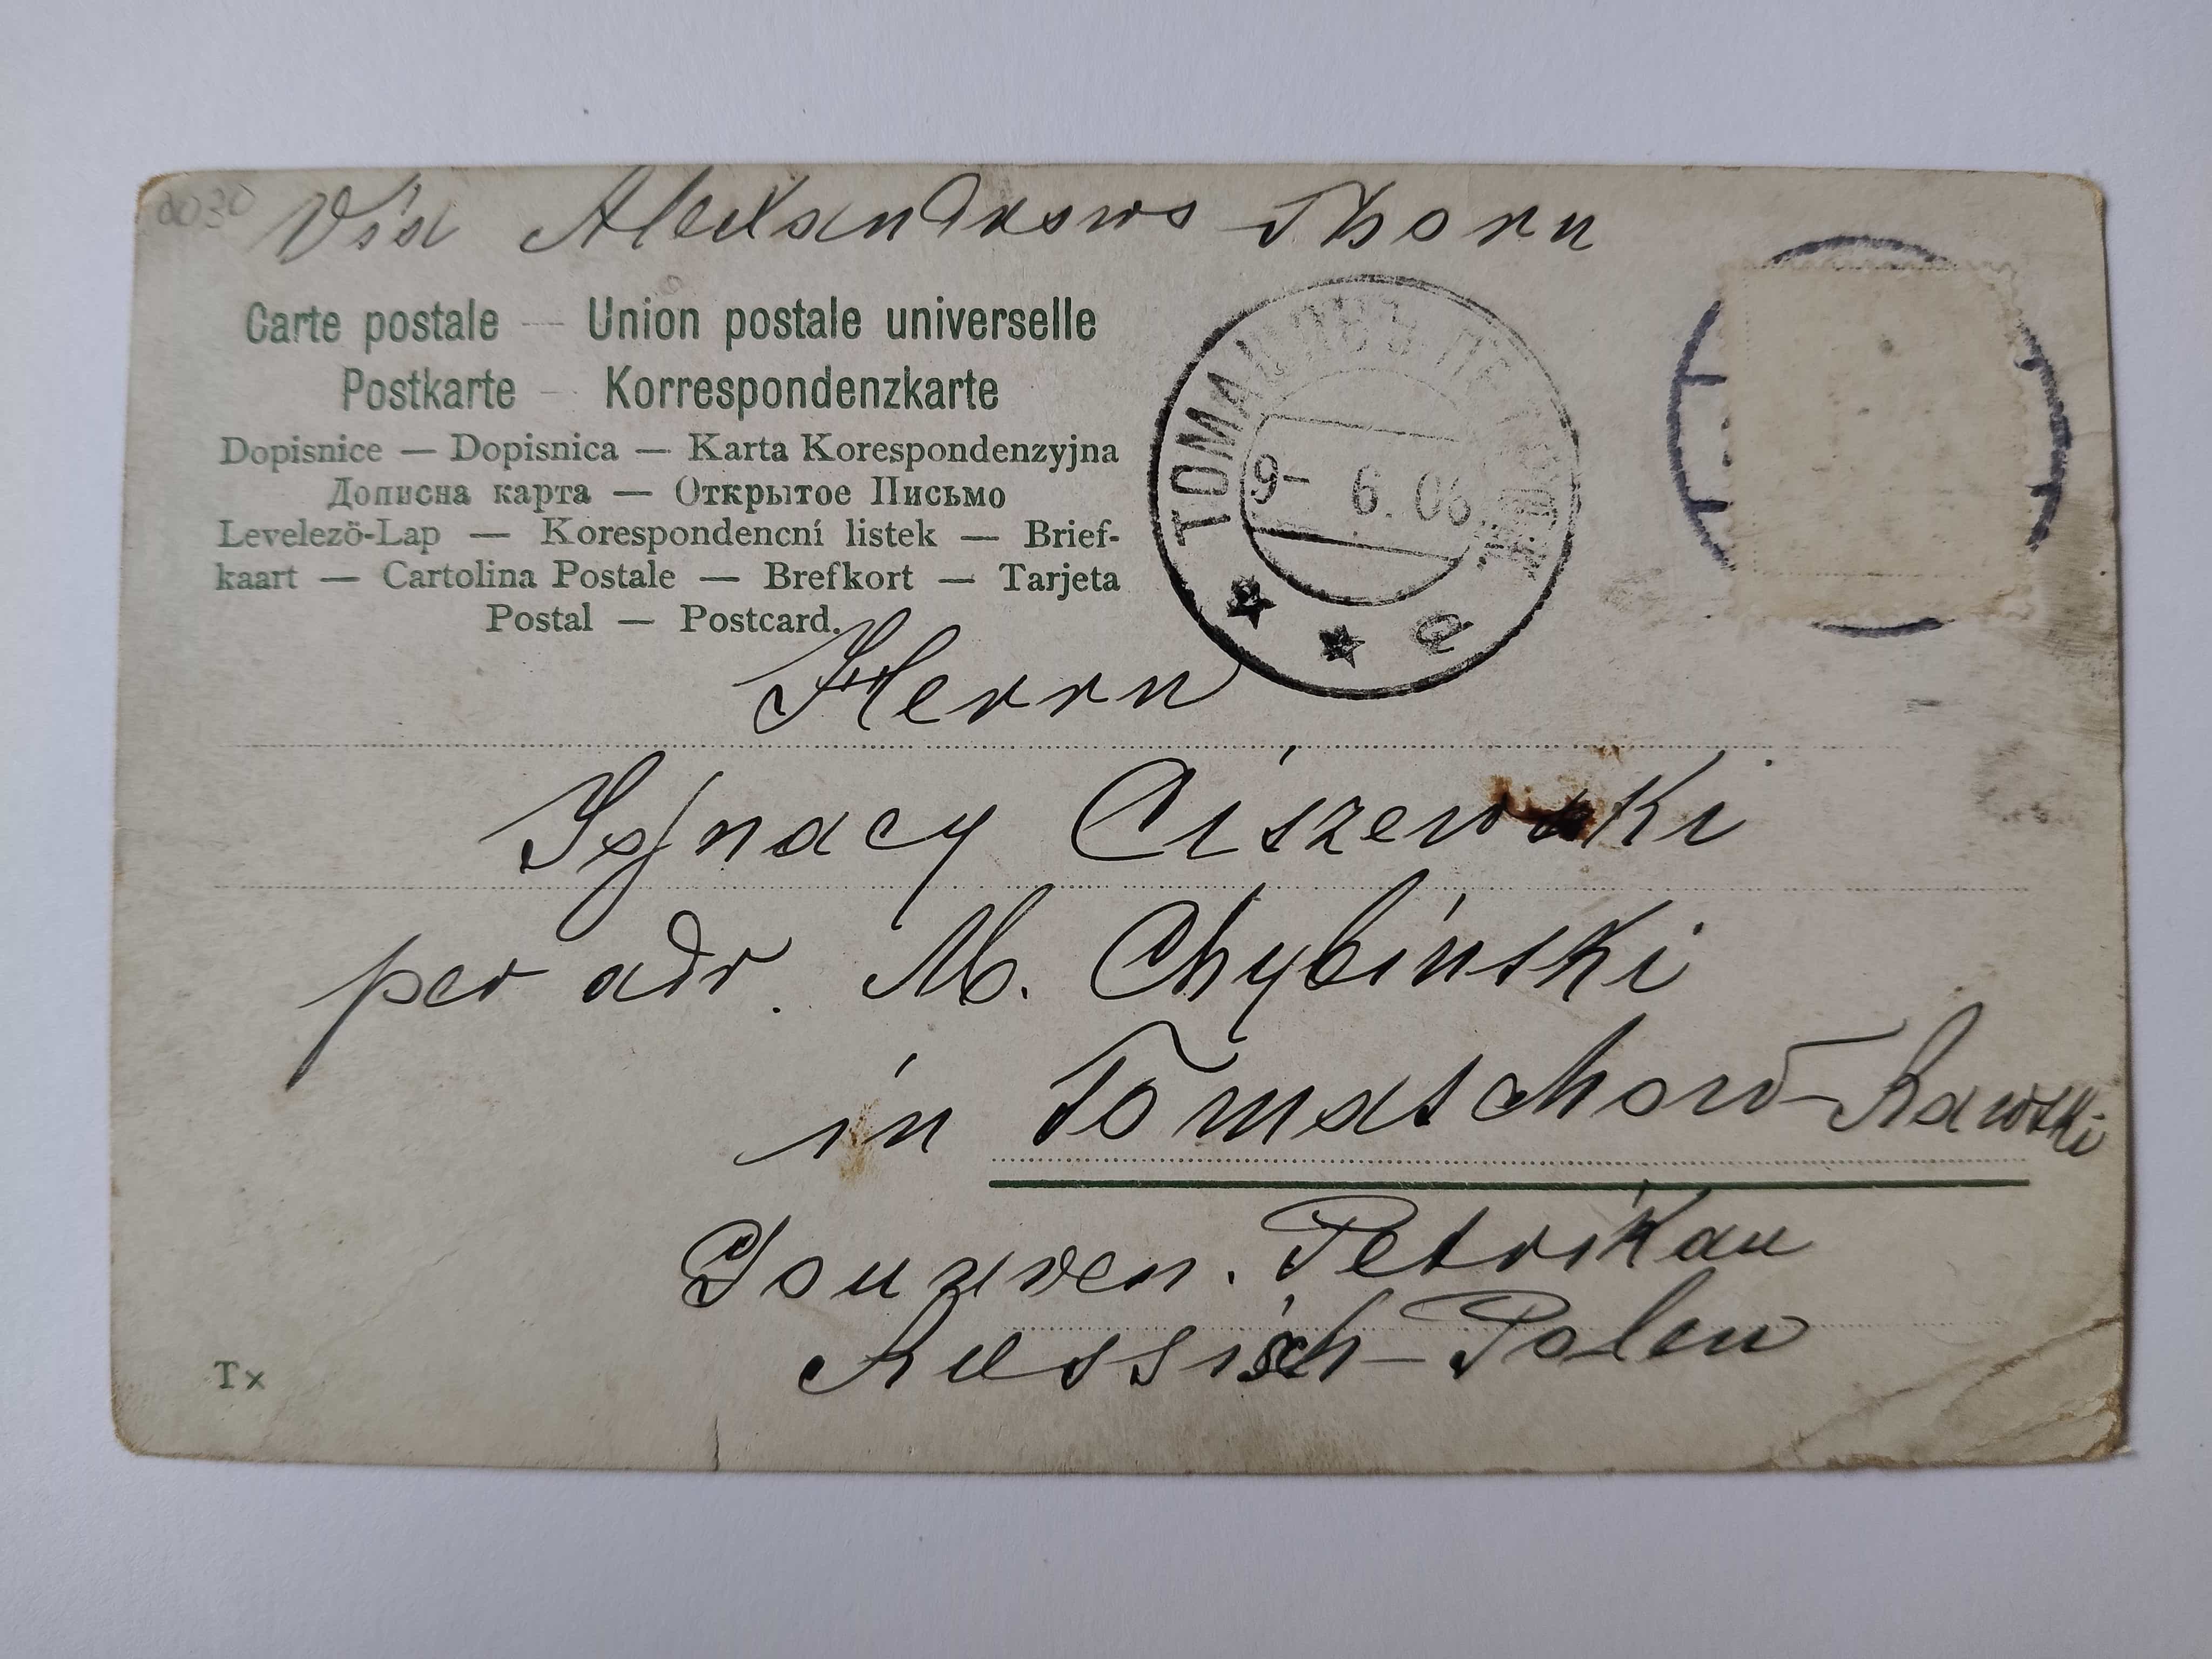 2030
Via Alexandrowo Thorn
Carte postale — Union postale universelle
Postkarte — Korrespondenzkarte
Dopisnice — Dopisnica — Karta Korespondenzyjna
Дописна карта — Открытое Письмо
Levelezö-Lap — Korespondencní listek — Brief-
kaart — Cartolina Postale — Brefkort — Tarjeta
Postal — Postcard.
9-6.06
a
Herrn
Ignacy Ciszewski
per adr. M. Chybinski
in Tomaschow-Rawski
Gouvern. Petrikau
Russisch-Polen
Tx